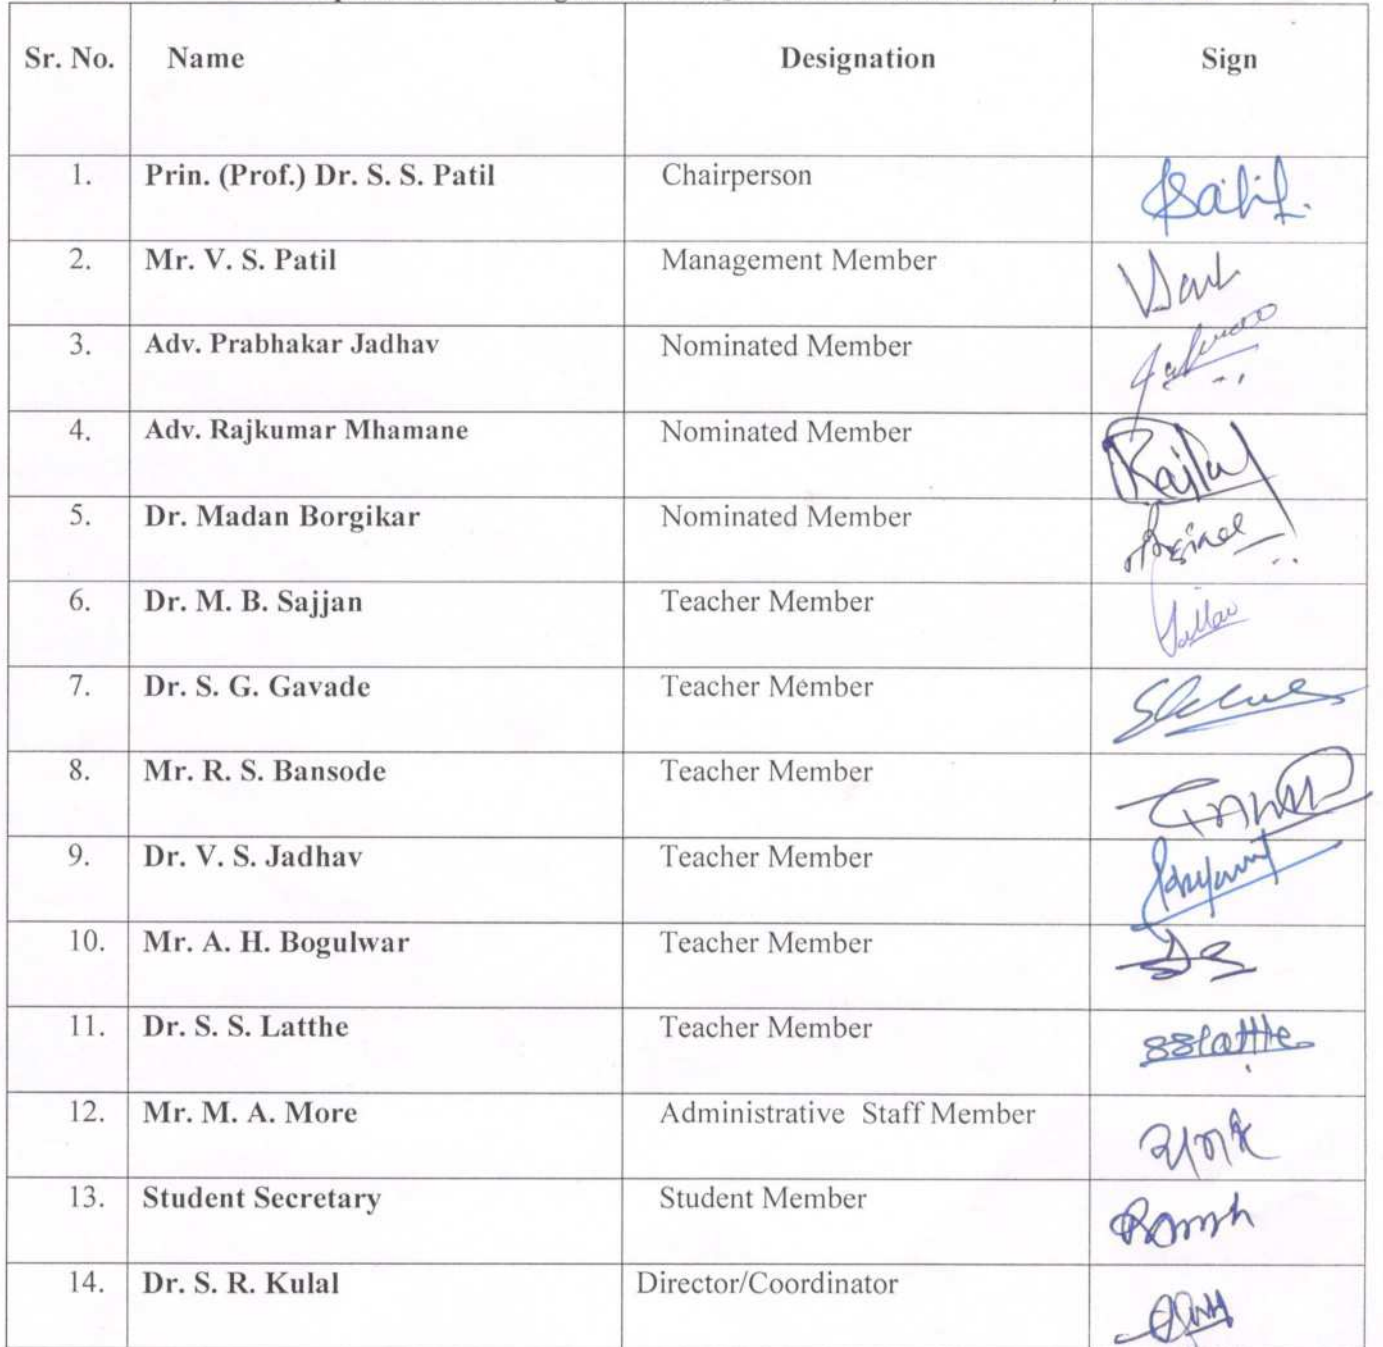 Sr. No. Name Designation Sign
1. Prin. (Prof.) Dr. S. S. Patil Chairperson
2. Mr. V. S. Patil Management Member
3. Adv. Prabhakar Jadhav Nominated Member
4. Adv. Rajkumar Mhamane Nominated Member
5. Dr. Madan Borgikar Nominated Member
6. Dr. M. B. Sajjan Teacher Member
7. Dr. S. G. Gavade Teacher Member
8. Mr. R. S. Bansode Teacher Member
9. Dr. V. S. Jadhav Teacher Member
10. Mr. A. H. Bogulwar Teacher Member
11. Dr. S. S. Latthe Teacher Member sslatthe
12. Mr. M. A. More Administrative Staff Member
13. Student Secretary Student Member
14. Dr. S. R. Kulal Director/Coordinator